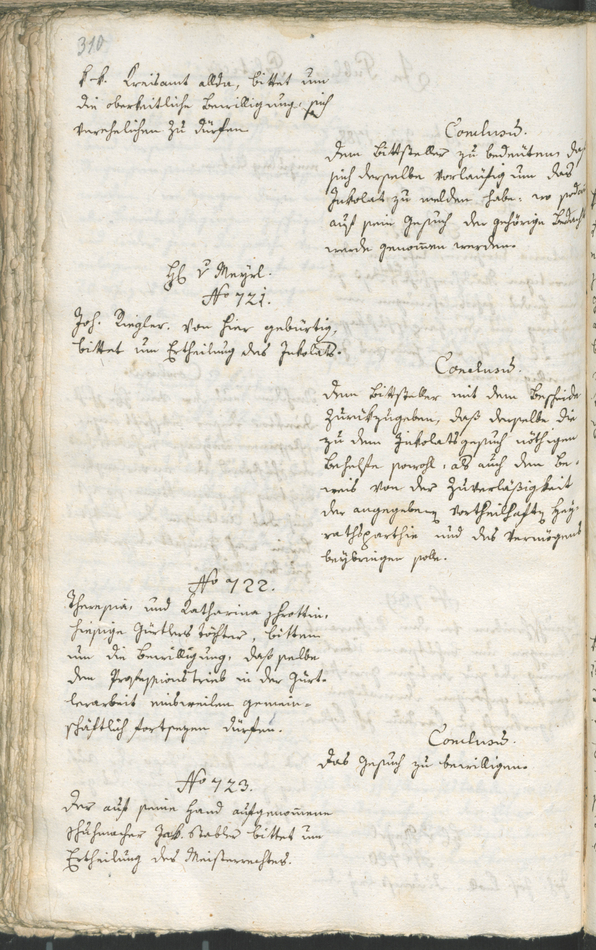 310
k.k. Kreisamt allda, bittet um
die oberkeitliche Bewilligung, sich
verehelichen zu dürfen
Conclusũ.
Dem Bittsteller zu bedeuten, daß
sich derselbe vorläufig um das
Inkolat zu melden habe: wo sodan
auf sein Gesuch der gehörige Bedacht
werde genom̄en werden.
H v Meyrl.
No 721.
Joh. Riegler, von hier gebürtig,
bittet um Ertheilung des Inkolats.
Conclusũ.
Dem Bittsteller mit dem Bescheide
zurückzugeben, daß derselbe die
zu dem Inkolatsgesuch nöthigen
Behelfe sowohl, als auch den Be-
weis von der Zuverläßigkeit
der angegebenen vortheilhaften Hey-
rathsparthie und des Vermögens
beybringen solle.
No 722.
Theresia, und Katharina Schrottin,
hiesige Gürtlers töchter, bitten
um die Bewilligung, daß selbe
den Professionstrieb in der Gürt-
lerarbeit einsweilen gemein-
schäftlich fortsezen dürfen.
Conclusũ.
Das Gesuch zu bewilligen.
No 723.
Der auf seine Hand aufgenom̄ene
Schuhmacher Jak. Stabler bittet um
Ertheilung des Meisterrechtes.